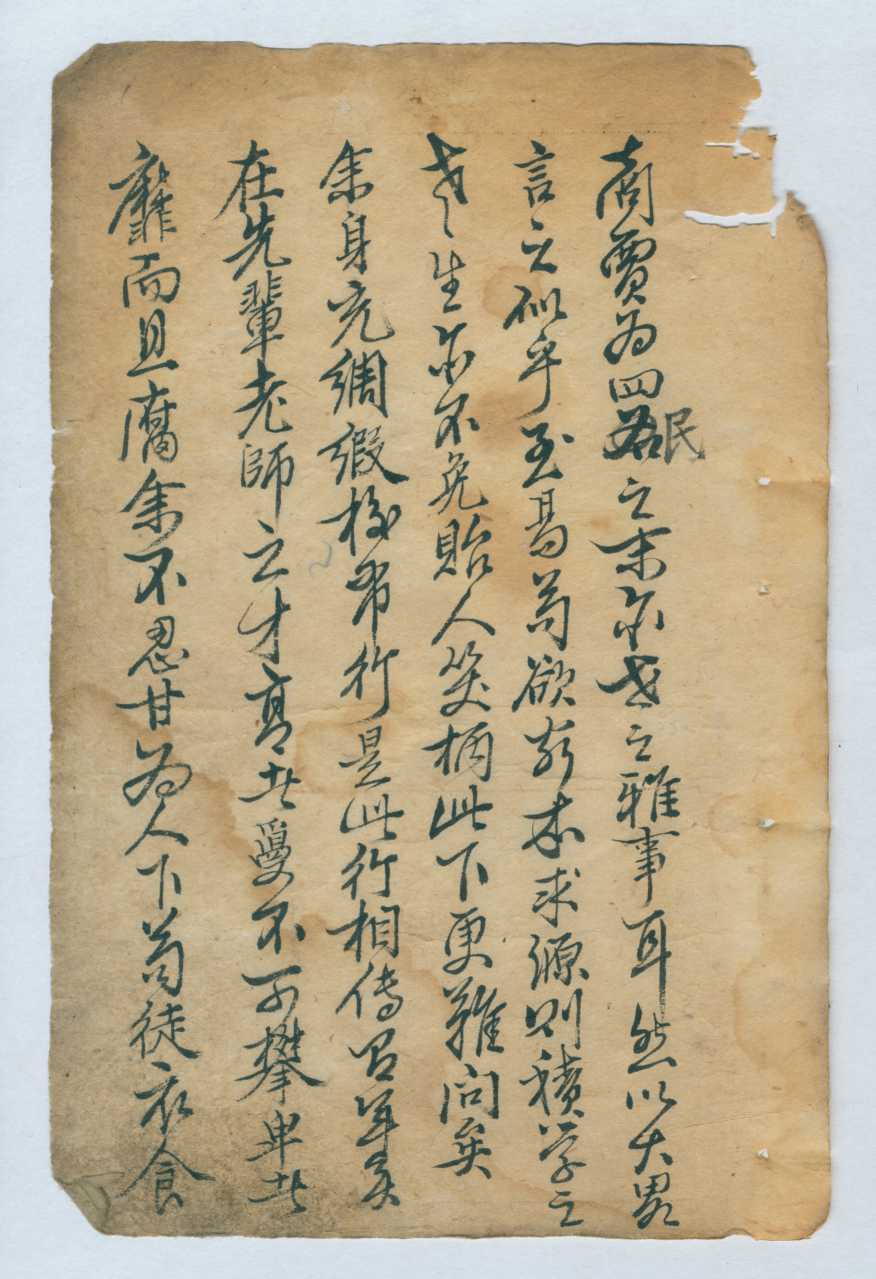 商賈為四民之末亦世之雅事耳然以大畧
言之似乎至易苟欲窮本求源則積學之
老生亦不免貽人笑柄此下更難问矣
余身充綢緞梭布行是此行相傳習年矣
在先輩老師之才高者憂不可攀卑者
靡而且腐余不忍甘為人下苟徒衣食